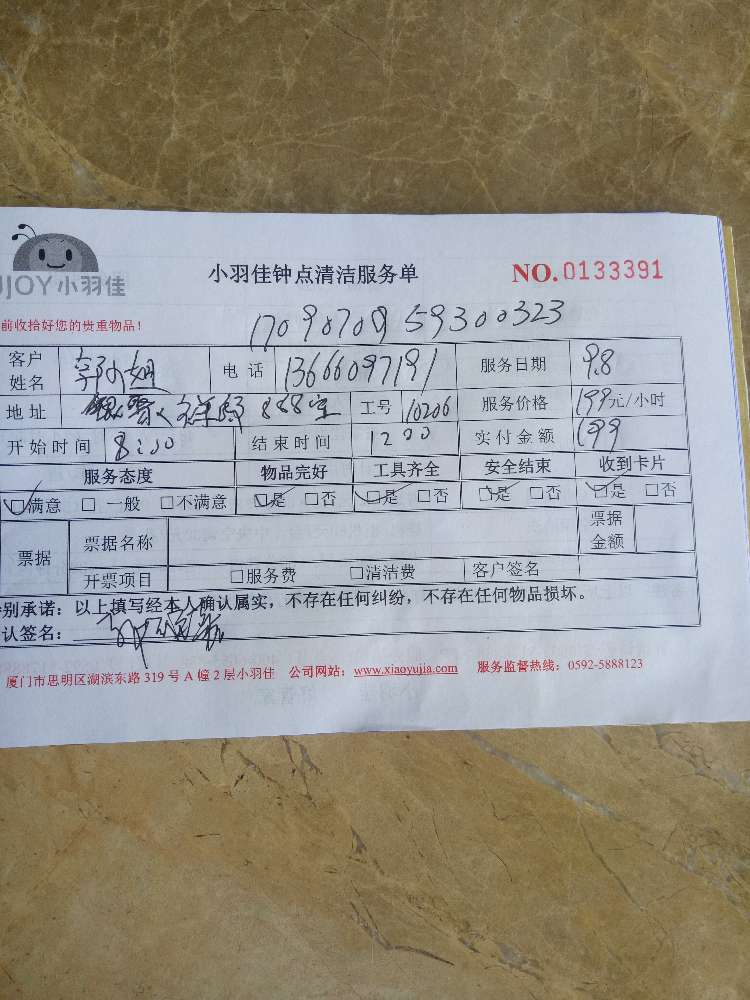 JOY小羽佳
小羽佳钟点清洁服务单
NO.0133391
前收拾好您的贵重物品！
1709070959300323
客户姓名 郭小姐 电话 13666097191 服务日期 9.8
地址 888室 工号 10206 服务价格 199元/小时
开始时间 8:00 结束时间 1200 实付金额 199
服务态度 物品完好 工具齐全 安全结束 收到卡片
☑满意 □一般 □不满意 ☑是 □否 ☑是 □否 ☑是 □否 ☑是 □否
票据 票据名称 票据金额
开票项目 □服务费 □清洁费 客户签名
别承诺：以上填写经本人确认属实，不存在任何纠纷，不存在任何物品损坏。
认签名：
厦门市思明区湖滨东路319号A幢2层小羽佳 公司网站：www.xiaoyujia.com 服务监督热线：0592-5888123